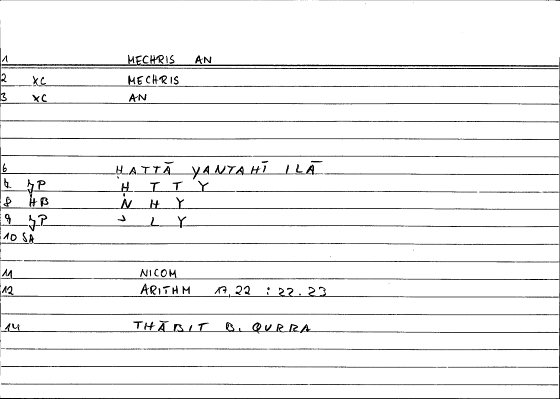 1 MECHRIS AN
2 XC MECHRIS
3 XC AN
6 ḤATTĀ YANTAHĪ ILĀ
7 ʒP Ḥ T T Y
8 HB N H Y
9 ʒP ʾ L Y
10 SA
11 NICOM
12 ARITHM 17,22 : 22.23
14 THĀBIT B. QURRA